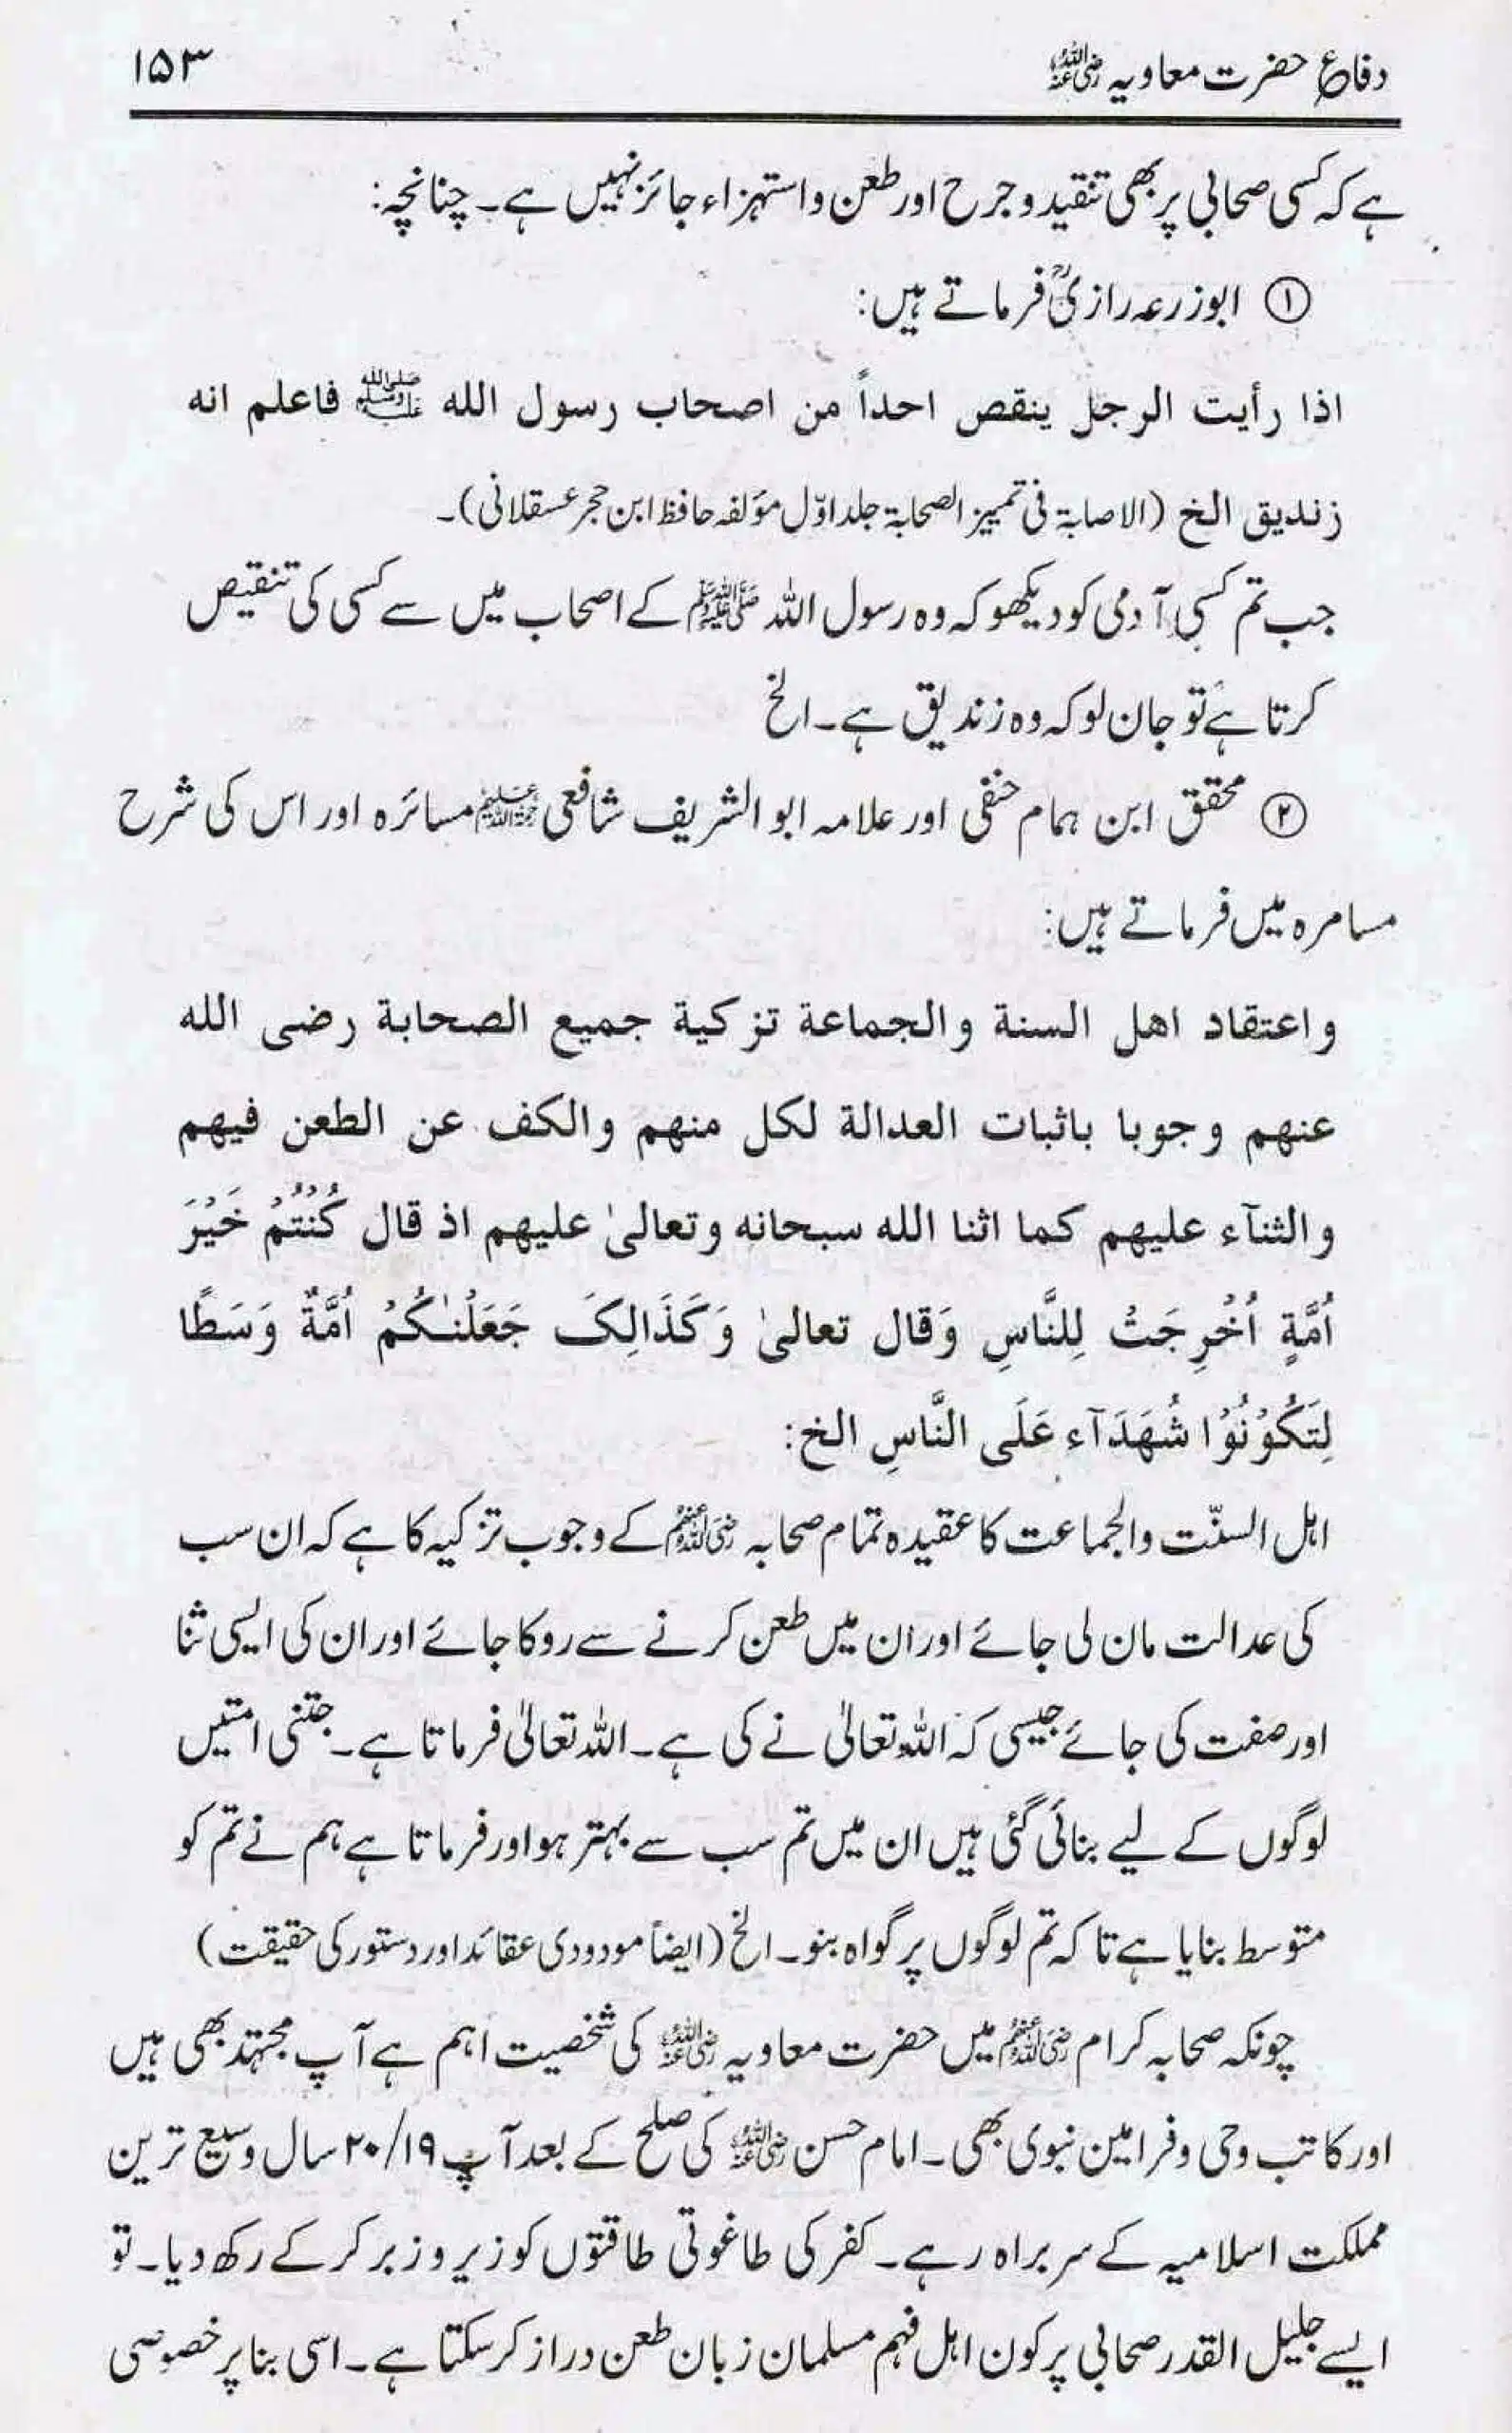 دفاعِ حضرت معاویہ رضی اللہ عنہ ۱۵۳
ہے کہ کسی صحابی پر بھی تنقید و جرح اور طعن و استہزاء جائز نہیں ہے۔ چنانچہ:
① ابوزرعہ رازیؒ فرماتے ہیں:
اذا رأيت الرجل ينقص احداً من اصحاب رسول الله ﷺ فاعلم انه
زنديق الخ (الاصابۃ فی تمییز الصحابۃ جلد اوّل مؤلفہ حافظ ابن حجر عسقلانی)۔
جب تم کسی آدمی کو دیکھو کہ وہ رسول اللہ ﷺ کے اصحاب میں سے کسی کی تنقیص
کرتا ہے تو جان لو کہ وہ زندیق ہے۔ الخ
② محقق ابن ہمام حنفی اور علامہ ابو الشریف شافعی رحمۃ اللہ علیہ مسائرہ اور اس کی شرح
مسامرہ میں فرماتے ہیں:
واعتقاد اهل السنة والجماعة تزكية جميع الصحابة رضى الله
عنهم وجوبا باثبات العدالة لكل منهم والكف عن الطعن فيهم
والثنآء عليهم كما اثنا الله سبحانه وتعالىٰ عليهم اذ قال كُنْتُمْ خَيْرَ
اُمَّةٍ اُخْرِجَتْ لِلنَّاسِ وَقال تعالىٰ وَكَذَالِكَ جَعَلْنٰكُمْ اُمَّةً وَسَطًا
لِتَكُوْنُوْا شُهَدَآء عَلَى النَّاسِ الخ:
اہل السنّت والجماعت کا عقیدہ تمام صحابہ رضی اللہ عنہم کے وجوب تزکیہ کا ہے کہ ان سب
کی عدالت مان لی جائے اور ان میں طعن کرنے سے روکا جائے اور ان کی ایسی ثنا
اور صفت کی جائے جیسی کہ اللہ تعالیٰ نے کی ہے۔ اللہ تعالیٰ فرماتا ہے۔ جتنی امتیں
لوگوں کے لیے بنائی گئی ہیں ان میں تم سب سے بہتر ہو اور فرماتا ہے ہم نے تم کو
متوسط بنایا ہے تاکہ تم لوگوں پر گواہ بنو۔ الخ (ایضاً مودودی عقائد اور دستور کی حقیقت)
چونکہ صحابہ کرام رضی اللہ عنہم میں حضرت معاویہ رضی اللہ عنہ کی شخصیت اہم ہے آپ مجتہد بھی ہیں
اور کاتب وحی و فرامین نبوی بھی۔ امام حسن رضی اللہ عنہ کی صلح کے بعد آپ ۲۰/۱۹ سال وسیع ترین
مملکت اسلامیہ کے سربراہ رہے۔ کفر کی طاغوتی طاقتوں کو زیر و زبر کر کے رکھ دیا۔ تو
ایسے جلیل القدر صحابی پر کون اہل فہم مسلمان زبان طعن دراز کر سکتا ہے۔ اسی بنا پر خصوصی